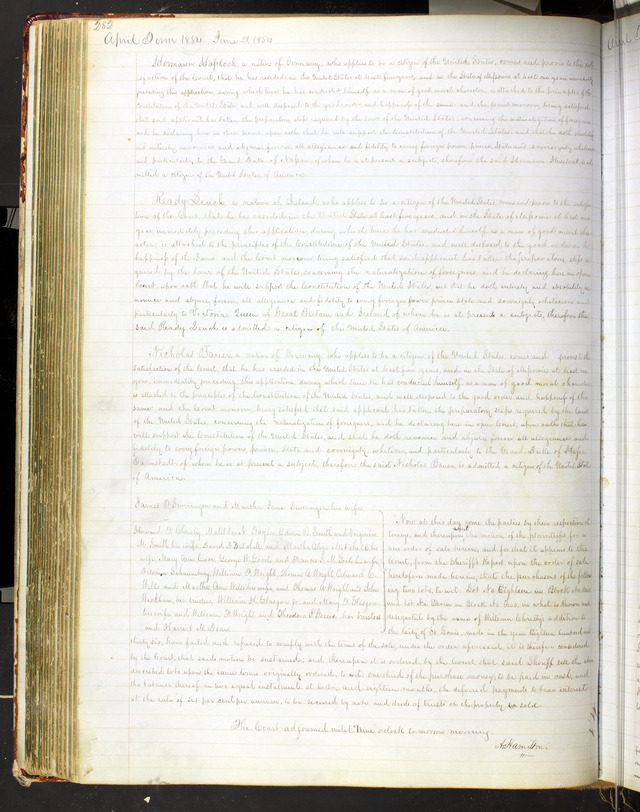 282
April Term 1854. June 21, 1854
Hermann a native of Germany, who applies to be a citizen of the United States, comes and proves to the
satisfaction of the Court, that he has resided in the United States at least five years, and in the State of Missouri at least one year, immediately
preceding this application, during which time he has conducted himself as a man of good moral character, is attached to the principles of the
Constitution of the United States and well disposed to the good order and happiness of the same; and the Court moreover being satisfied
that said applicant has taken the preparatory steps required by the laws of the United States, concerning the naturalization of foreigners
and he declaring here in open court, upon oath that he will support the Constitution of the United States, and that he doth absolutely
and entirely renounce and abjure forever all allegiance and fidelity to every foreign power, prince, State and sovereignty whatsoever
and particularly to the Grand Duke of of whom he is at present a subject, therefore the said Hermann is ad
mitted a citizen of the United States of America.
Ready a native of Ireland, who applies to be a citizen of the United States, comes and proves to the satisfac
tion of the Court, that he has resided in the United States at least five years, and in the State of Missouri at least one
year, immediately preceding this application, during which time he has conducted himself as a man of good moral char
acter, is attached to the principles of the Constitution of the United States, and well disposed to the good order and
happiness of the same and the Court moreover being satisfied that said applicant has taken the preparatory steps re
quired by the laws of the United States, concerning the naturalization of foreigners, and he declaring here in open
Court, upon oath that he will support the Constitution of the United States, and that he doth entirely and absolutely re
nounce and abjure forever all allegiance and fidelity to every foreign power, prince, state and sovereignty whatsoever and
particularly to Victoria Queen of Great Britain and Ireland of whom he is at present a subject, therefore the
said Ready is admitted a citizen of the United States of America.
Nicholas Bauer a native of Germany, who applies to be a citizen of the United States, comes and proves to the
satisfaction of the Court, that he has resided in the United States at least five years, and in the State of Missouri at least one
year, immediately preceding this application, during which time he has conducted himself as a man of good moral character
is attached to the principles of the Constitution of the United States, and well disposed to the good order and happiness of the
same and the Court moreover being satisfied that said applicant has taken the preparatory steps required by the laws
of the United States, concerning the naturalization of foreigners, and he declaring here in open Court, upon oath that he
will support the Constitution of the United States, and that he doth renounce and abjure forever all allegiance and
fidelity to every foreign power, prince, State and sovereignty whatsoever, and particularly to the Grand Duke of Hesse
Darmstadt, of whom he is at present a subject, therefore the said Nicholas Bauer is admitted a citizen of the United States
of America.
James D. and Martha Jane his wife
Howard Christy, Matilda N. Taylor, Edwin C. Smith and Virginia
N. Smith his wife, David D. Mitchell and Martha Eliza Mitchell his
wife, Mary Ann George W. and Frances M. his wife
William T. Wright, Thomas C. Wright, Edward C.
Wills and Martha Ann Wills his wife, and Thomas C. Wright and John
trustees, William H. Glasgow jr. and Mary F. Glasgow
his wife and William T. Wright and Theodore P. her trustees
and Harriet M.
Now at this day come the parties by their respective at
torneys, and thereupon upon the motion of the plaintiffs for a
new order of sale herein, and for that it appears to the
Court, from the Sheriffs Report upon the order of sale
heretofore made herein, that the purchasers of the follow
ing two lots, to wit: Lot No. Eighteen in Block No. one
and lot No. in Block No. two, in what is known and
designated by the name of William Christy's addition to
the City of St. Louis, made in the year Eighteen hundred and
thirty six, have failed and refused to comply with the terms of the sale, under the order aforesaid, it is therefore considered
by the Court, that said motion be sustained, and thereupon it is ordered by the Court that said Sheriff sell the above
described lots upon the same terms originally ordered, to wit: one third of the purchase money to be paid in cash, and
the balance thereof in two equal instalments at twelve and eighteen months, the deferred payments to bear interest
at the rate of six per cent per annum, to be secured by note and deeds of trust on the property so sold.
The Court adjourned until Nine oclock tomorrow morning.
A. Hamilton